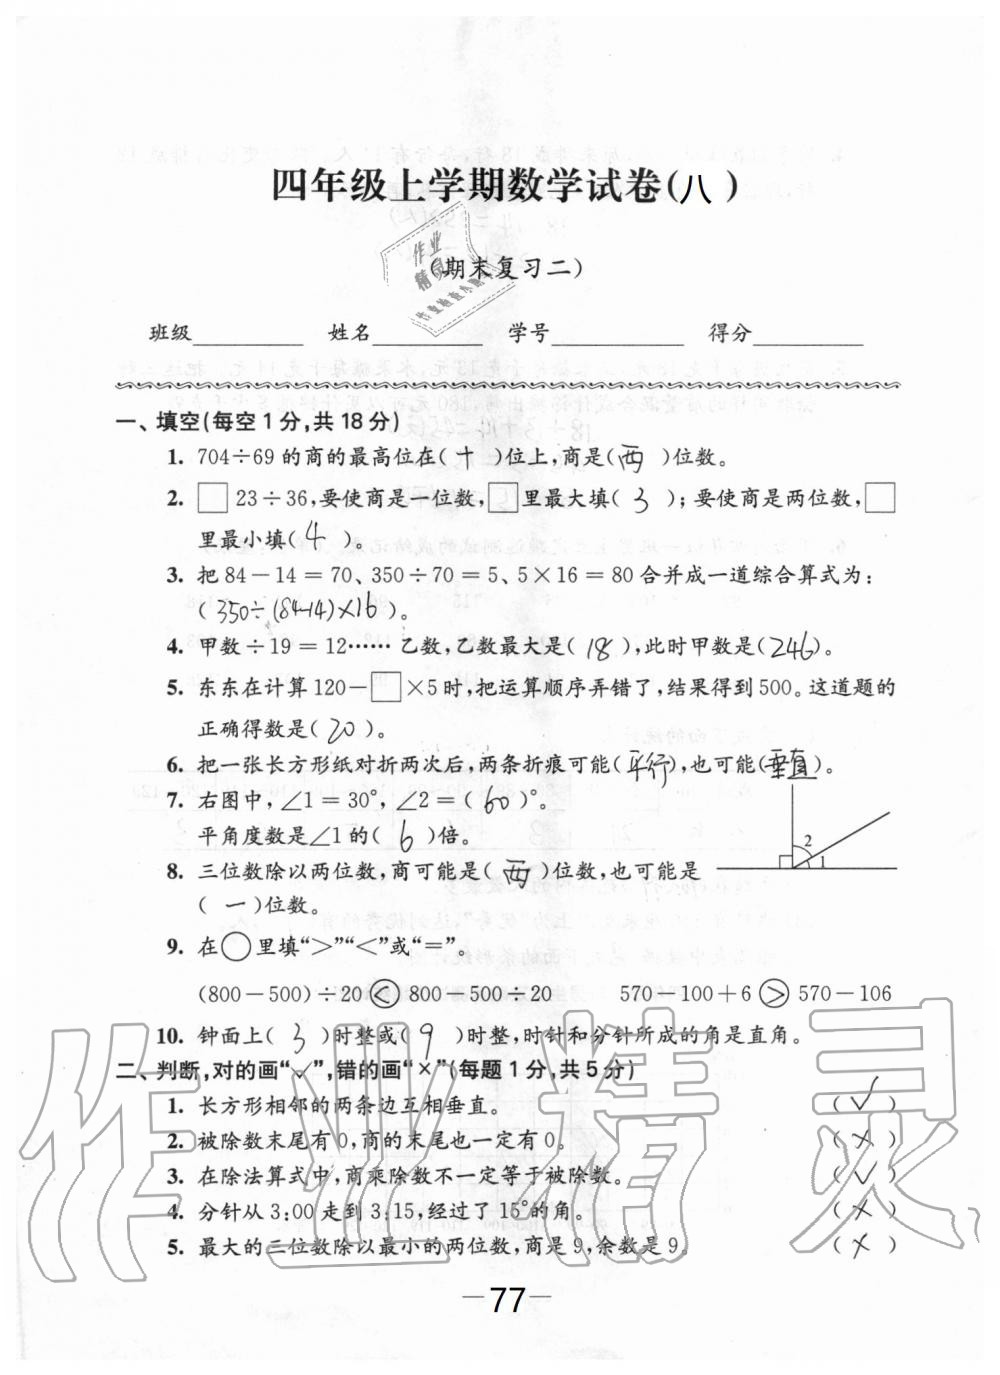 四年级上学期数学试卷(八)
(期末复习二)
班级 姓名 学号 得分
一、填空(每空1分,共18分)
1. 704÷69的商的最高位在(十)位上,商是(两)位数。
2. □23÷36,要使商是一位数,□里最大填(3);要使商是两位数,□
里最小填(4)。
3. 把84-14=70、350÷70=5、5×16=80合并成一道综合算式为:
(350÷(84-14)×16)。
4. 甲数÷19=12……乙数,乙数最大是(18),此时甲数是(246)。
5. 东东在计算120-□×5时,把运算顺序弄错了,结果得到500。这道题的
正确得数是(20)。
6. 把一张长方形纸对折两次后,两条折痕可能(平行),也可能(垂直)。
7. 右图中,∠1=30°,∠2=(60)°。
平角度数是∠1的(6)倍。
2
1
8. 三位数除以两位数,商可能是(两)位数,也可能是
(一)位数。
9. 在○里填“>”“<”或“=”。
(800-500)÷20<800-500÷20 570-100+6>570-106
10. 钟面上(3)时整或(9)时整,时针和分针所成的角是直角。
二、判断,对的画“✓”,错的画“×”(每题1分,共5分)
1. 长方形相邻的两条边互相垂直。 (✓)
2. 被除数末尾有0,商的末尾也一定有0。 (×)
3. 在除法算式中,商乘除数不一定等于被除数。 (✓)
4. 分针从3:00走到3:15,经过了15°的角。 (×)
5. 最大的三位数除以最小的两位数,商是9,余数是9。 (×)
—77—
作业精灵
作业
精灵